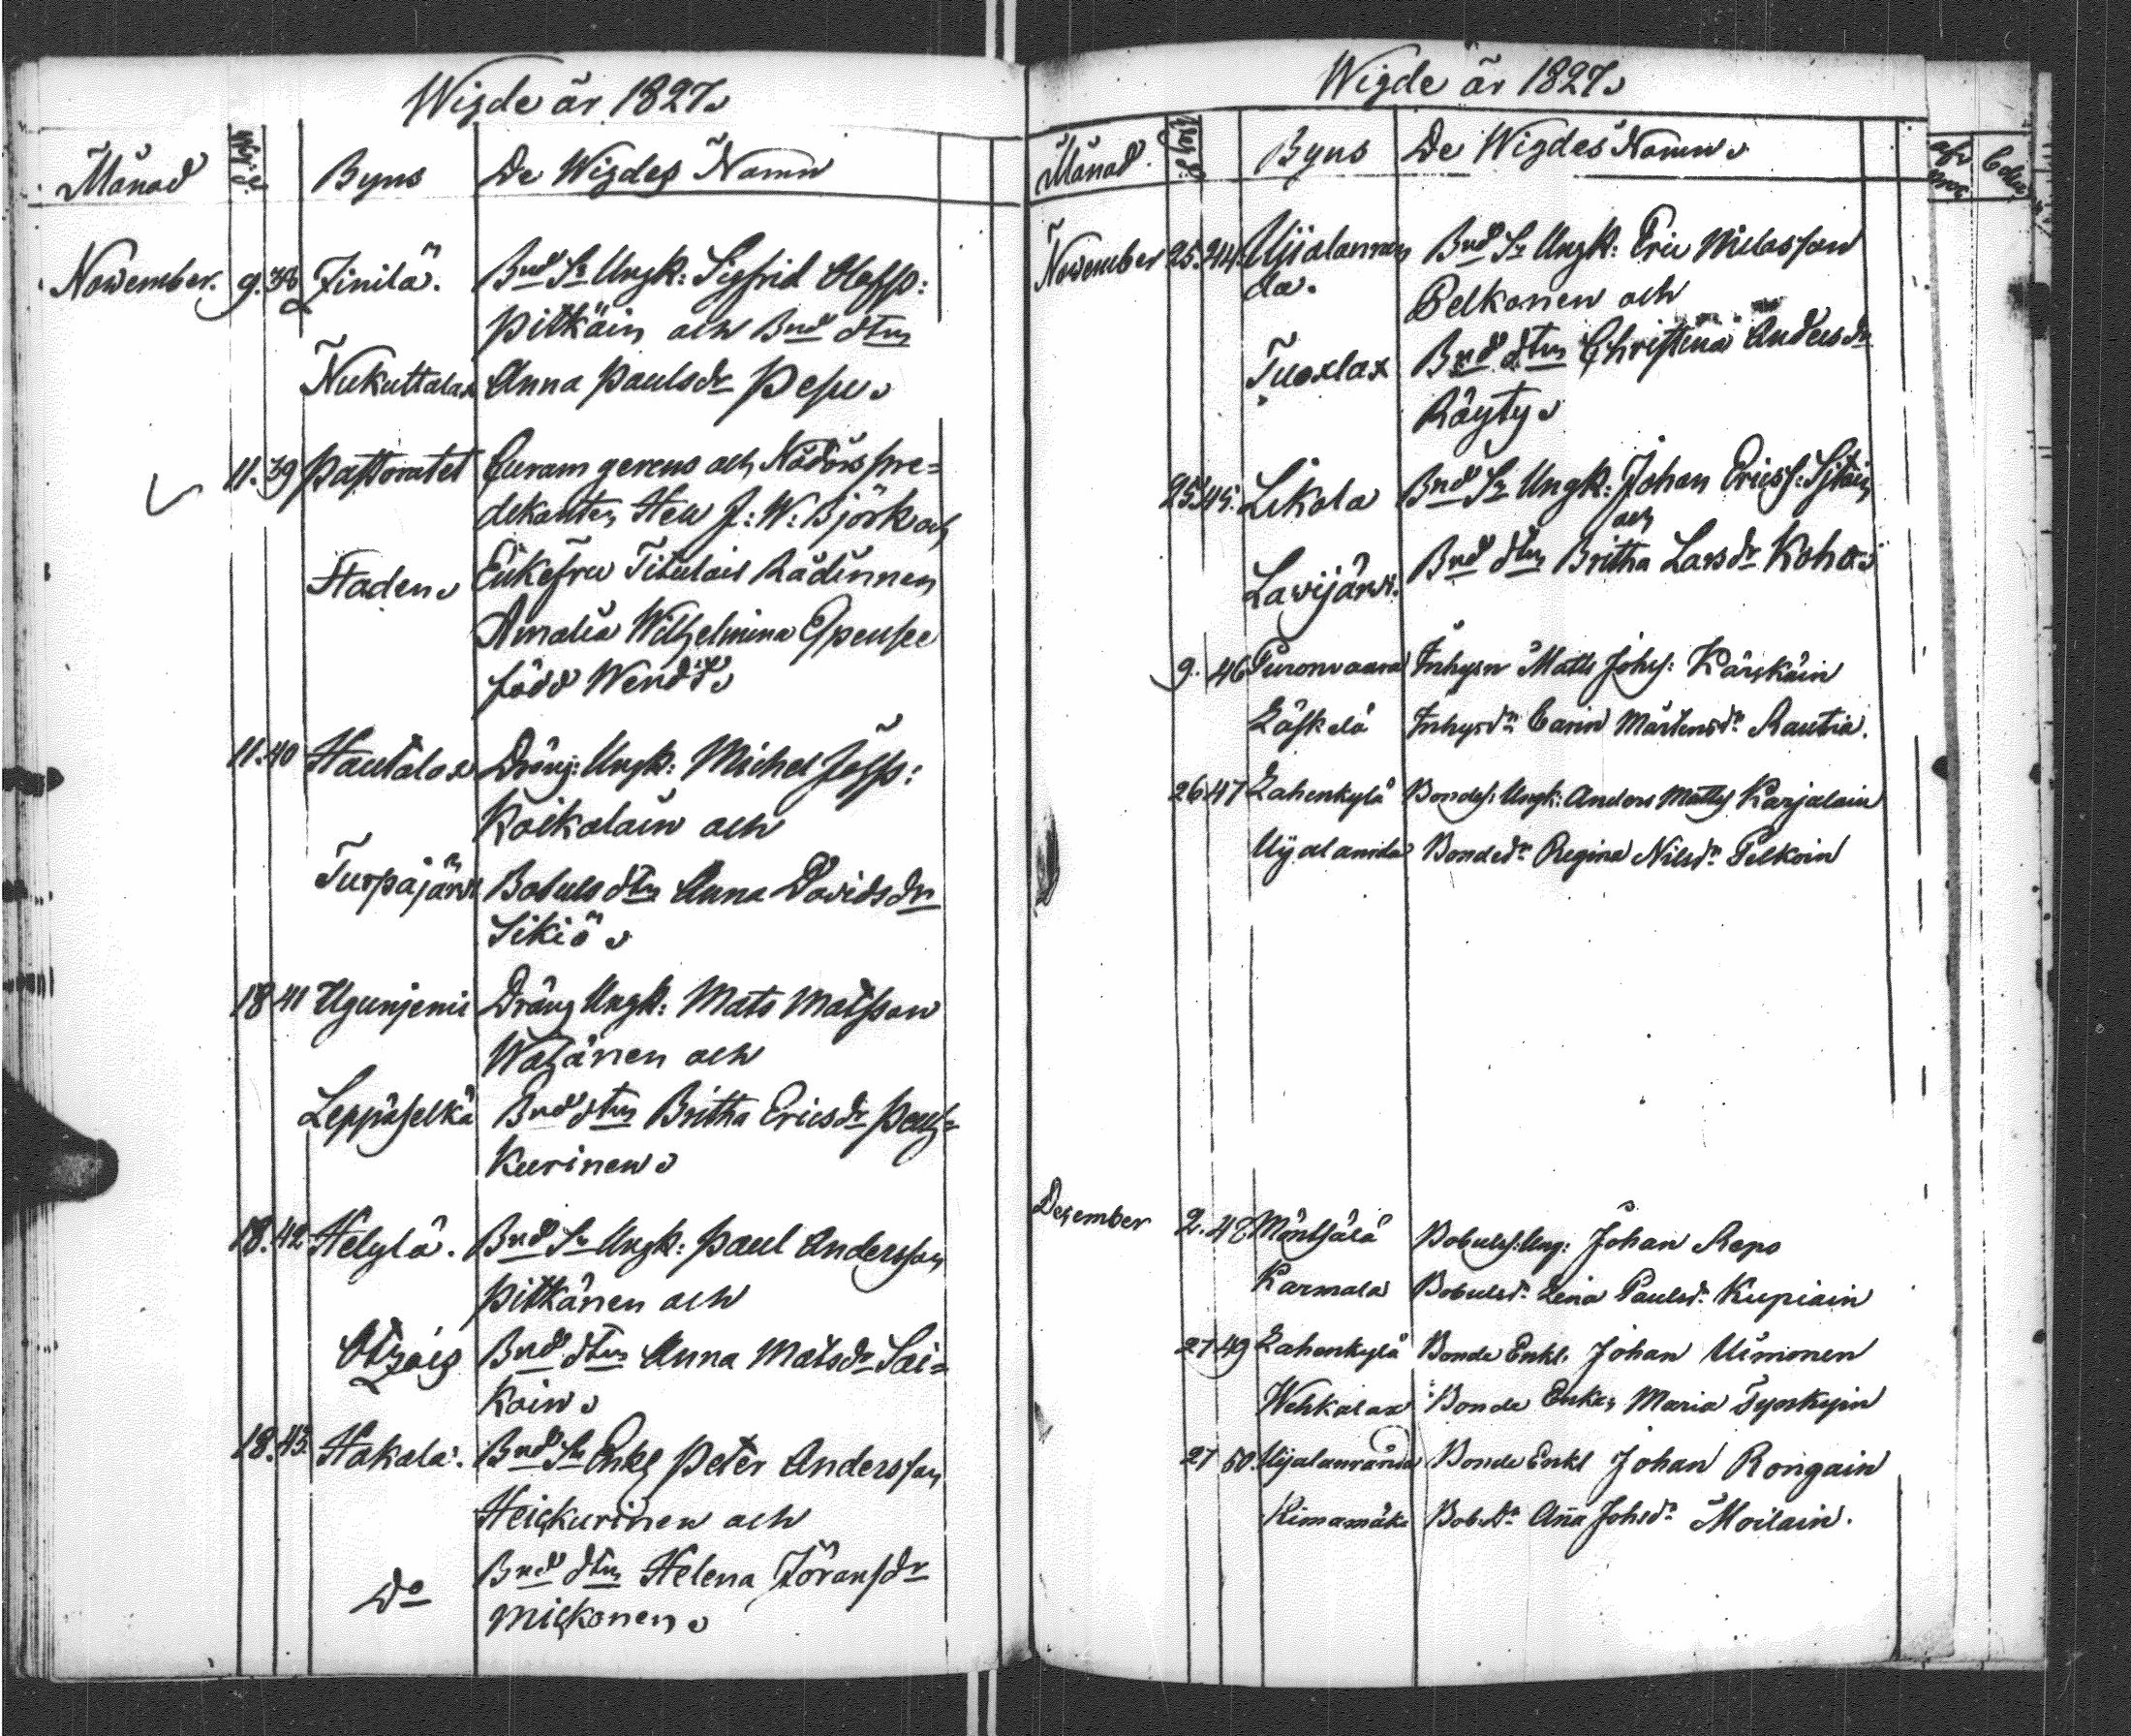 Wigde år 1827.
Månad Byns De Wigdes Namn
November. 9. 38 Finilä. Bnd Sn Ungk: Sigfrid Olofss:
Pitkäin och Bnd dtm
Nukuttalax Anna Paulsdr Pesu.
11. 39 Pastoratet Curam gerens och Nådårs pre=
dikanten Herr J: W: Björk och
Staden. Enkefru Titulair Rådinnan
Amalia Wilhelmina
född
11. 40 Hautalax Dräng: Ungk: Michel
Koikalain och
Turpajärvi Bobuls dtm Anna Davidsdr
Sikiö.
18 41 Ugunjemi Dräng Ungk: Mats Matsson
Watänen och
Leppäselkä Bnd dtm Britha Ericsdr Pauz=
kurinen.
18. 42. Helylä. Bnd Sn Ungk: Paul Andersson
Pitkänen och
Bnd dtm Anna Matsdr Sai=
koin.
18. 43. Hakala. Bnd Sn Enkl Peter Andersson
Heickurinen och
Do Bnd dtm Helena Jöransdr
Mickonen.
Wigde år 1827.
Månad. Byns De Wigdes Namn.
November 25. 44. Uijalanran Bnd Sn Ungk: Eric Nielasson
da. Pelkonen och
Tuoxlax Bnd dtm Christina Andersdr
Räyty.
25. 45. Likola Bnd Sn Ungk: Johan Ericss:
och
Lavijärvi. Bnd dtm Britha Larsdr Koho.
9. 46 Puronvaara Inhysn Matts Johs: Kärkäin
Läskelä Inhysdr Carin Mårtensdr Rautia.
26 47 Lahenkylä Bondes: Ungk: Anders Matts Karjalain
Uijalanrda Bondedr Regina Nilsdr Pelkoin
December 2. 48 Möntsälä Bobuls: Ung: Johan Repo
Karmala Bobulsdr Lena Paulsdr Kupiain
27 49 Lahenkylä Bonde Enkl. Johan Uimonen
Wehkalax Bonde Enka Maria
27 50. Uijalanranda Bonde Enkl Johan Rongain
Kimamäki Bob. Dr Anna Johsdr Moilain.